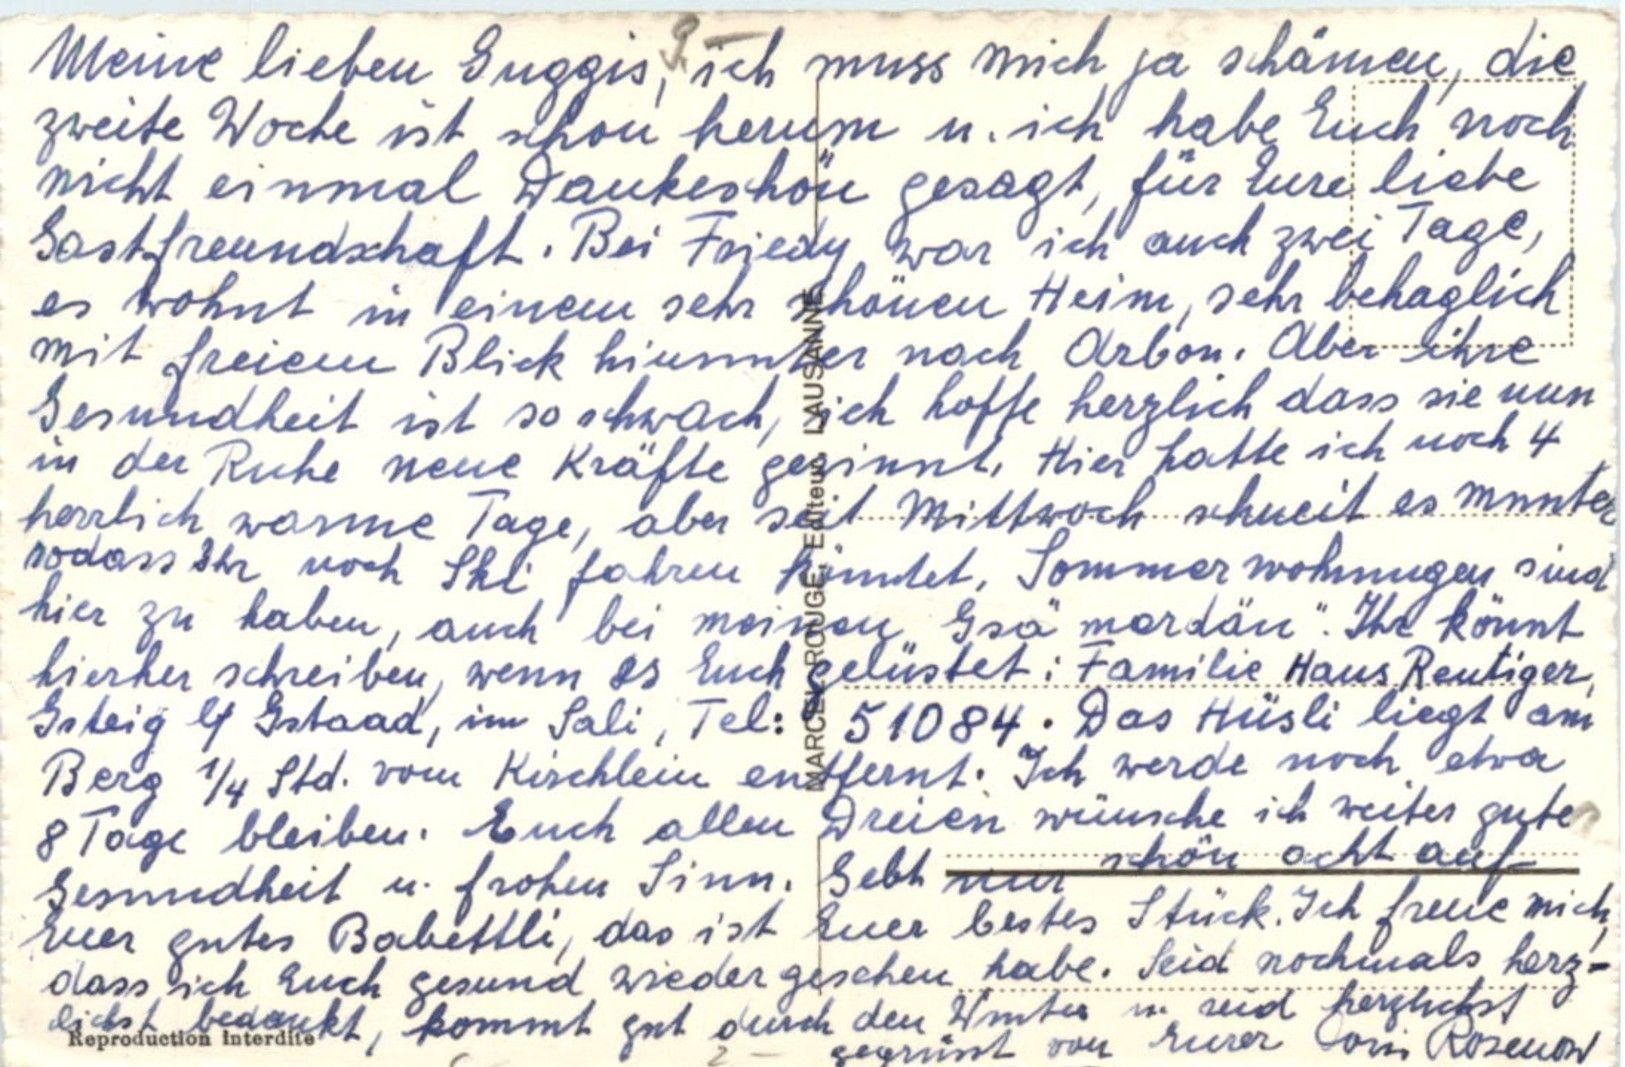 Meine lieben Guggis, ich muss mich ja schämen, die
zweite Woche ist schon herum u. ich habe Euch noch
nicht einmal Dankeschön gesagt, für Eure liebe
Gastfreundschaft. Bei Friedy war ich auch zwei Tage,
es wohnt in einem sehr schönen Heim, sehr behaglich
mit freiem Blick hinunter nach Arbon. Aber ihre
Gesundheit ist so schwach, ich hoffe herzlich dass sie nun
in der Ruhe neue Kräfte gewinnt. Hier hatte ich noch 4
herrlich warme Tage, aber seit Mittwoch schneit es munter
sodass Ihr noch Ski fahren könntet. Sommerwohnungen sind
hier zu haben, auch bei meinen "Gsä mordän". Ihr könnt
hierher schreiben, wenn es Euch gelüstet: Familie Hans Reutiger,
Gsteig b/ Gstaad, im Sali, Tel: 51084. Das Hüsli liegt am
Berg 1/4 Std. vom Kirchlein entfernt. Ich werde noch etwa
8 Tage bleiben. Euch allen Dreien wünsche ich weiter gute
Gesundheit u. frohen Sinn. Gebt nur schön acht auf
Euer gutes Babettli, das ist Euer bestes Stück. Ich freue mich,
dass ich Euch gesund wiedergesehen habe. Seid nochmals herz-
lichst bedankt, kommt gut durch den Winter u. seid herzlichst
gegrüsst von Eurer Rosenow
MARCEL ROUGE, Editeur, LAUSANNE
Reproduction interdite